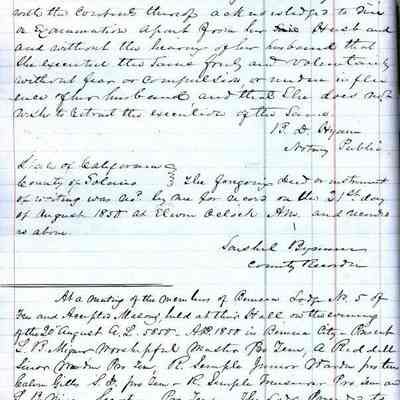 with the contents thereof acknowledged to me
on Examination apart from her Husband
and without the hearing of her husband that
she executed the same freely and Voluntarily
without fear or compulsion or undue influ
ence of her husband and that She does not
wish to retract the execution of the Same
B. D. Hyam
Notary Public
State of California
County of Solano The foregoing deed or instrument
of writing was by me for record on the 21st day
of August 1850 at Eleven Oclock AM. and recorded
as above
Bynum
County Recorder
At a meeting of the members of Benicia Lodge No. 5 of
Free and Accepted Masons, held at this Hall on the evening
of the 20 August A.L. 5850 - A.D. 1850 in Benicia City - Present
L. B. Mizner Worshipful Master Pro Tem, A Riddell
Senior Warden Pro Tem, R. Semple Junior Warden pro tem
S. D. pro Tem - R. Semple Treasurer Pro Tem and
L. B.